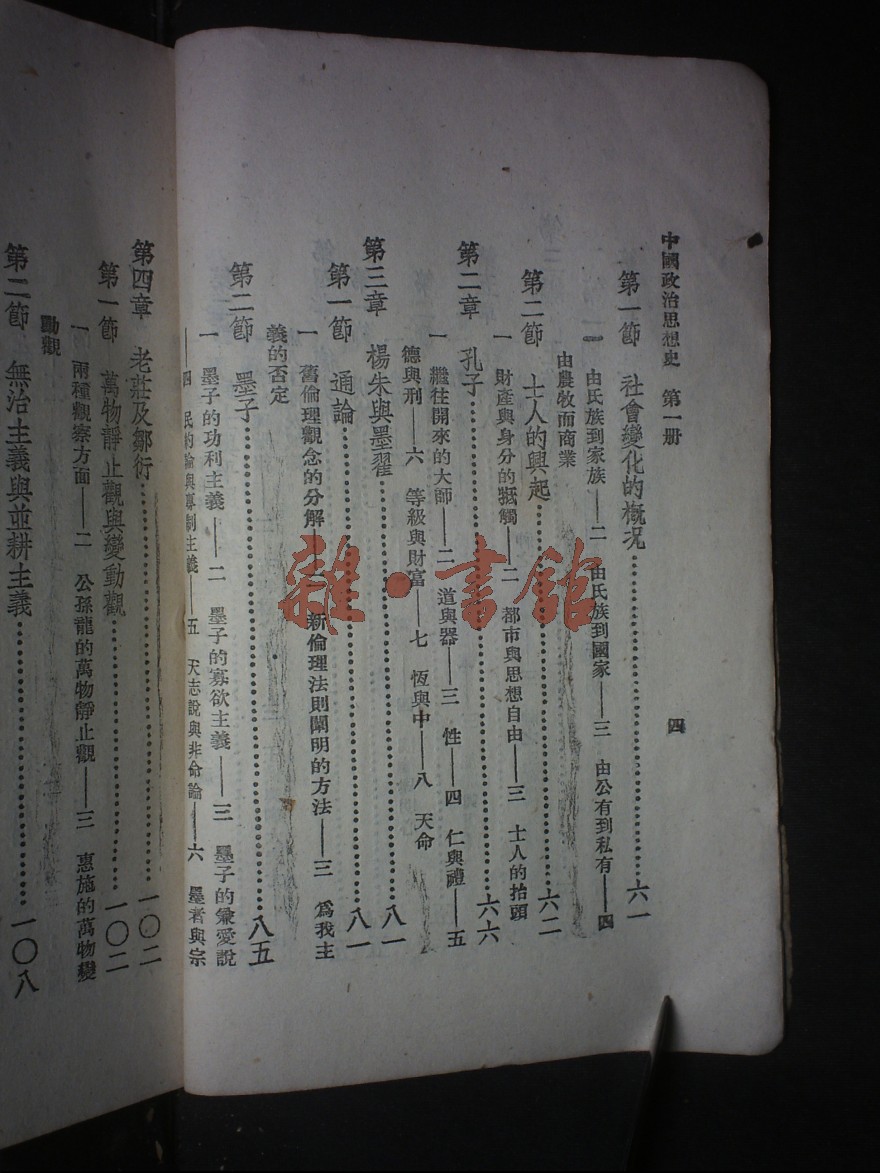 中國政治思想史　第一册
四
第一節　社會變化的概况……六一
一　由氏族到家族——二　由氏族到國家——三　由公有到私有——四
由農牧而商業
第二節　士人的興起……六二
一　財產與身分的牴觸——二　都市與思想自由——三　士人的抬頭
第二章　孔子……六六
一　繼往開來的大師——二　道與器——三　性——四　仁與禮——五
德與刑——六　等級與財富——七　恆與中——八　天命
第三章　楊朱與墨翟……八一
第一節　通論……八一
一　舊倫理觀念的分解——　新倫理法則闡明的方法——三　爲我主
義的否定
第二節　墨子……八五
一　墨子的功利主義——二　墨子的寡欲主義——三　墨子的兼愛說
——四　民約論與專制主義——五　天志說與非命論——六　墨者與宗
第四章　老莊及鄒衍……一〇二
第一節　萬物靜止觀與變動觀……一〇二
一　兩種觀察方面——二　公孫龍的萬物靜止觀——三　惠施的萬物變
動觀
第二節　無治主義與並耕主義……一〇八
雜·書館